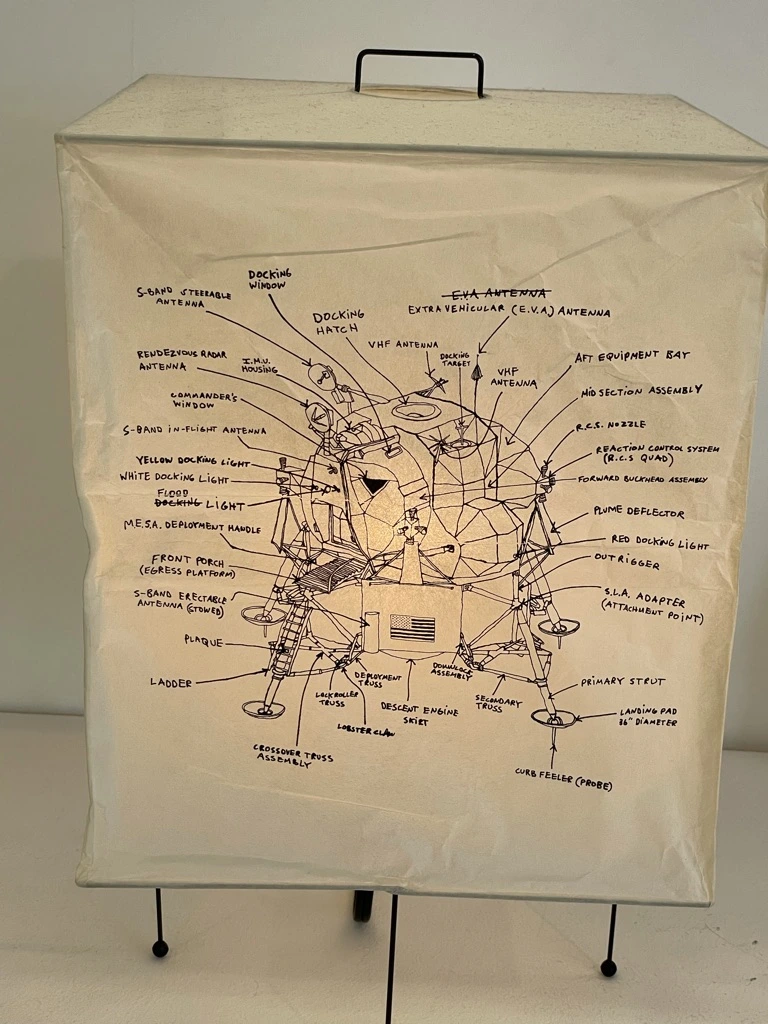 DOCKING
WINDOW
S-BAND STEERABLE
ANTENNA
E.V.A ANTENNA
EXTRA VEHICULAR (E.V.A.) ANTENNA
DOCKING
HATCH
VHF ANTENNA
DOCKING
TARGET
VHF
ANTENNA
AFT EQUIPMENT BAY
RENDEZVOUS RADAR
ANTENNA
I.M.U.
HOUSING
MID SECTION ASSEMBLY
COMMANDER'S
WINDOW
R.C.S. NOZZLE
S-BAND IN-FLIGHT ANTENNA
REACTION CONTROL SYSTEM
(R.C.S QUAD)
YELLOW DOCKING LIGHT
WHITE DOCKING LIGHT
FORWARD BUCKHEAD ASSEMBLY
FLOOD
DOCKING LIGHT
PLUME DEFLECTOR
M.E.S.A. DEPLOYMENT HANDLE
RED DOCKING LIGHT
FRONT PORCH
(EGRESS PLATFORM)
OUTRIGGER
S-BAND ERECTABLE
ANTENNA (STOWED)
S.L.A. ADAPTER
(ATTACHMENT POINT)
PLAQUE
LADDER
DEPLOYMENT
TRUSS
DOWNLOCK
ASSEMBLY
PRIMARY STRUT
LOCKROLLER
TRUSS
DESCENT ENGINE
SKIRT
SECONDARY
TRUSS
LANDING PAD
36" DIAMETER
LOBSTER CLAW
CROSSOVER TRUSS
ASSEMBLY
CURB FEELER (PROBE)